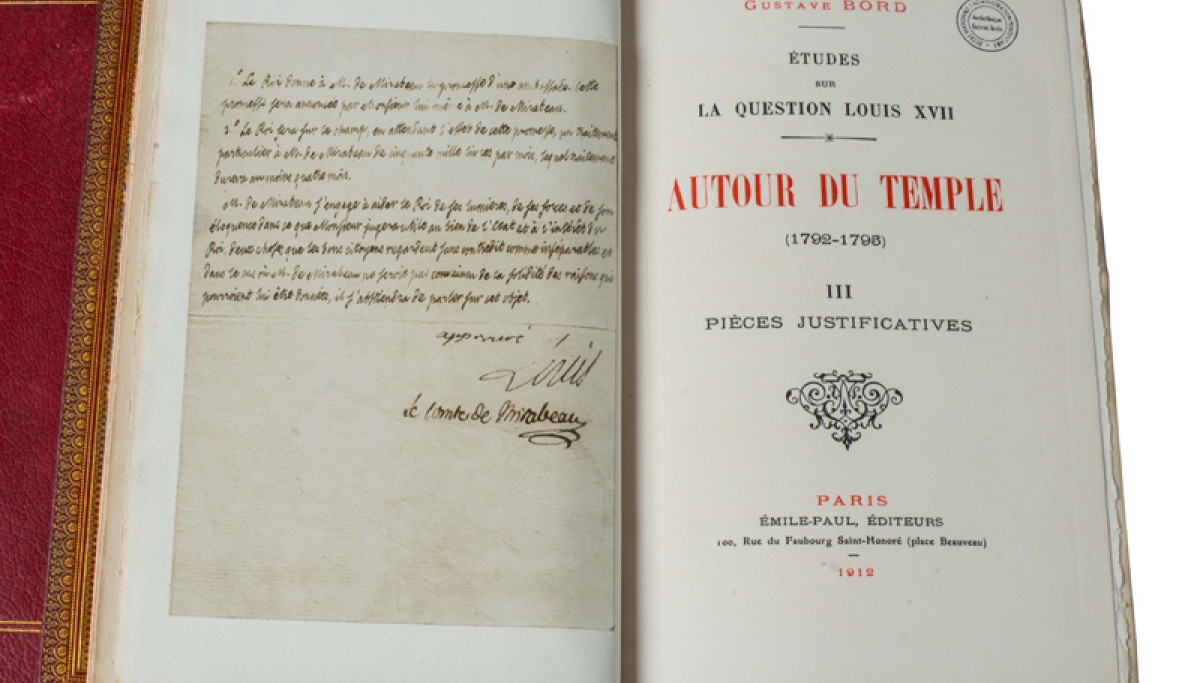 1.° Le Roi donne à M. de Mirabeau la promesse d'une ambassade. Cette
promesse sera annoncée par Monsieur lui même à M. de Mirabeau.
2.° Le Roi fera sur le champ, en attendant l'effet de cette promesse, un traitement
particulier à M. de Mirabeau de cinquante mille livres par mois, lequel traitement
durera au moins quatre mois.
M. de Mirabeau s'engage à aider le Roi de ses lumières, de ses forces et de son
éloquence dans ce que Monsieur jugera utile au bien de l'Etat et à l'intérêt du
Roi, deux choses que les bons citoyens regardent sans contredit comme inséparables et
dans le cas où M. de Mirabeau ne seroit pas convaincu de la solidité des raisons qui
pourroient lui être données, il s'abstiendra de parler sur cet objet.
approuvé
Louis
Le Comte de Mirabeau
GUSTAVE BORD
ÉTUDES
SUR
LA QUESTION LOUIS XVII
AUTOUR DU TEMPLE
(1792-1795)
III
PIÈCES JUSTIFICATIVES
PARIS
ÉMILE-PAUL, ÉDITEURS
100, Rue du Faubourg Saint-Honoré (place Beauveau)
1912